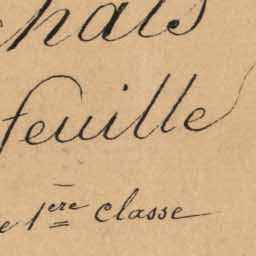 chals
feuille
e 1ère classe